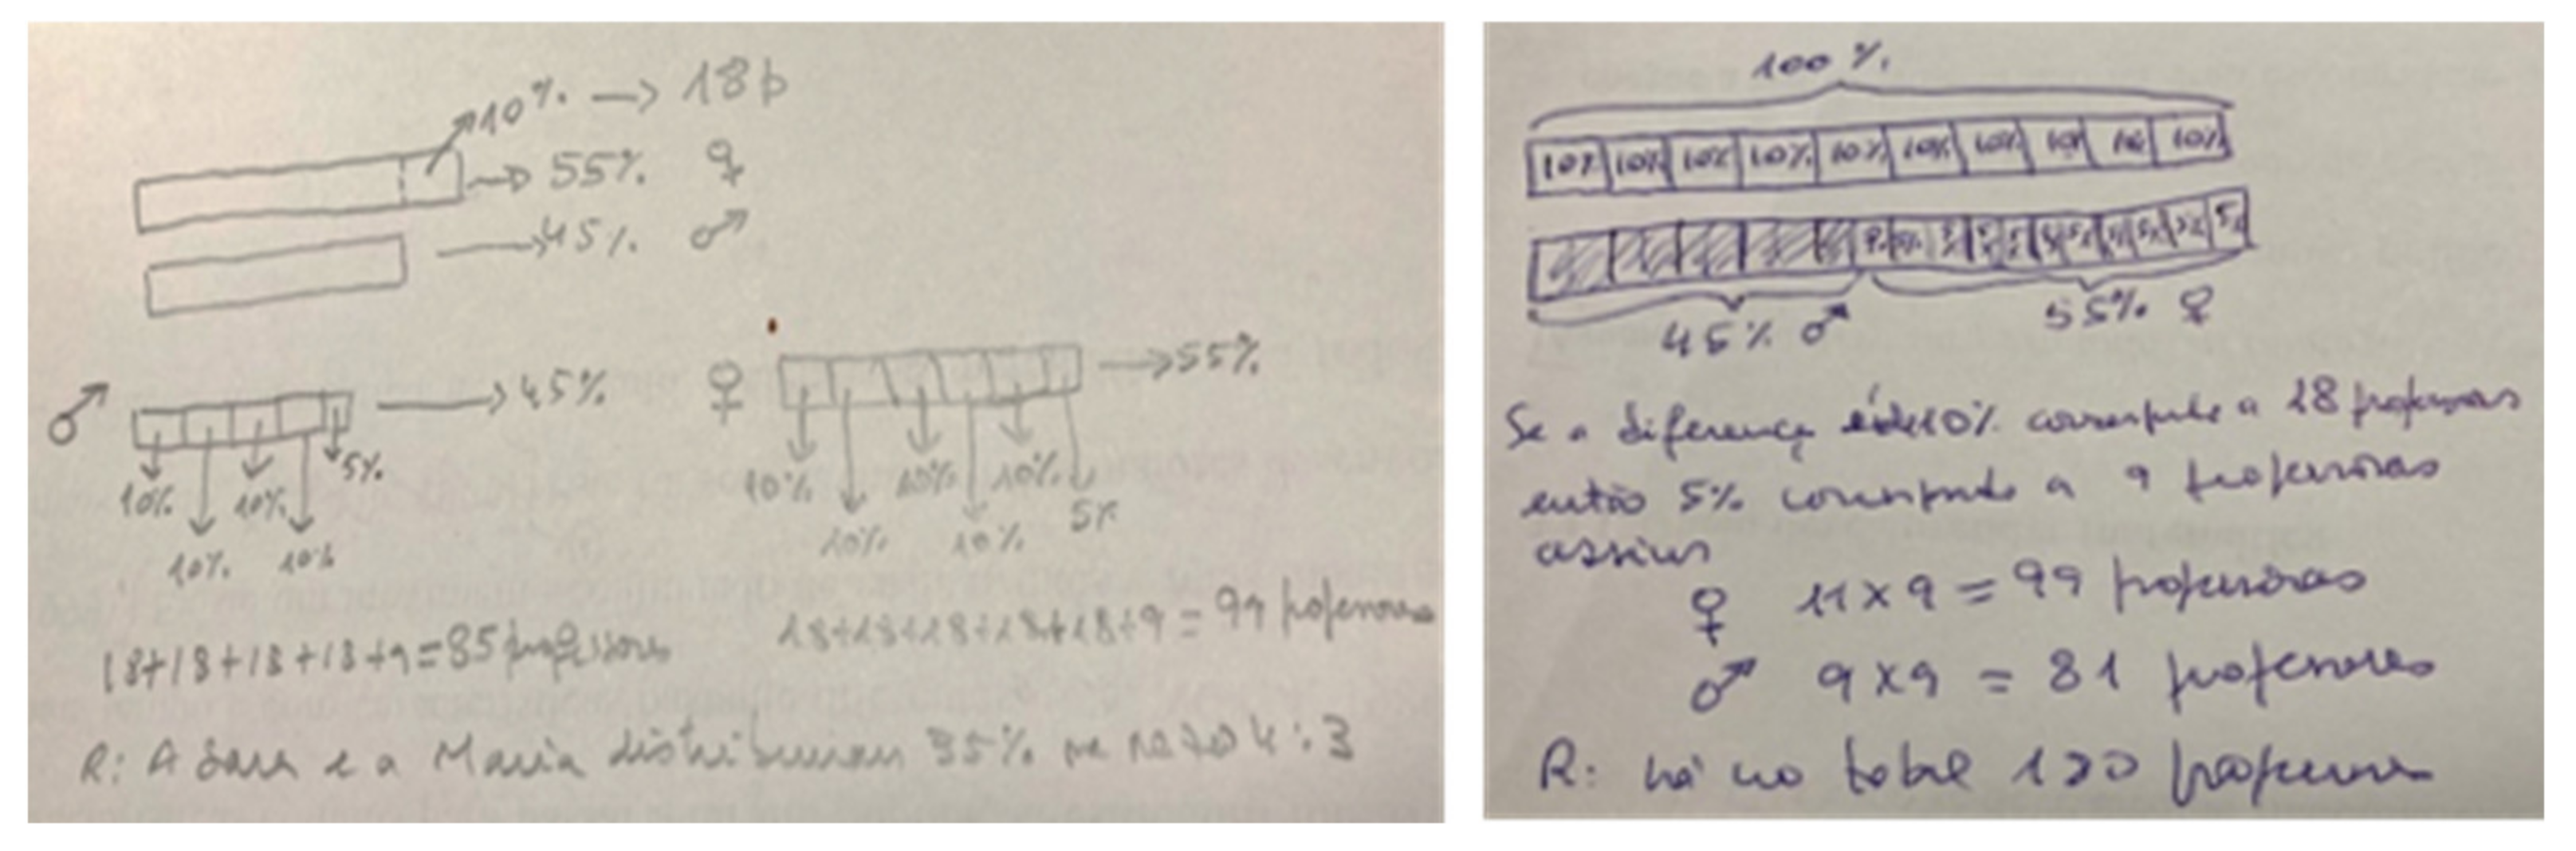 10% → 18p
→ 55% ♀
→ 45% ♂
♂ → 45%
5%
10% 10%
10% 10%
♀ → 55%
10% 10% 10%
10% 10% 5%
18+18+18+18+9=85 professores
18+18+18+18+18+9=99 professoras
R: A Sara e a Maria distribuiram 35% na razão 4:3
100%
10% 10% 10% 10% 10% 10% 10% 10% 10% 10%
5% 5% 5%
45% ♂ 55% ♀
Se a diferença é de 10% corresponde a 18 professoras
então 5% corresponde a 9 professoras
assim
♀ 11 x 9 = 99 professoras
♂ 9 x 9 = 81 professores
R: há no total professores